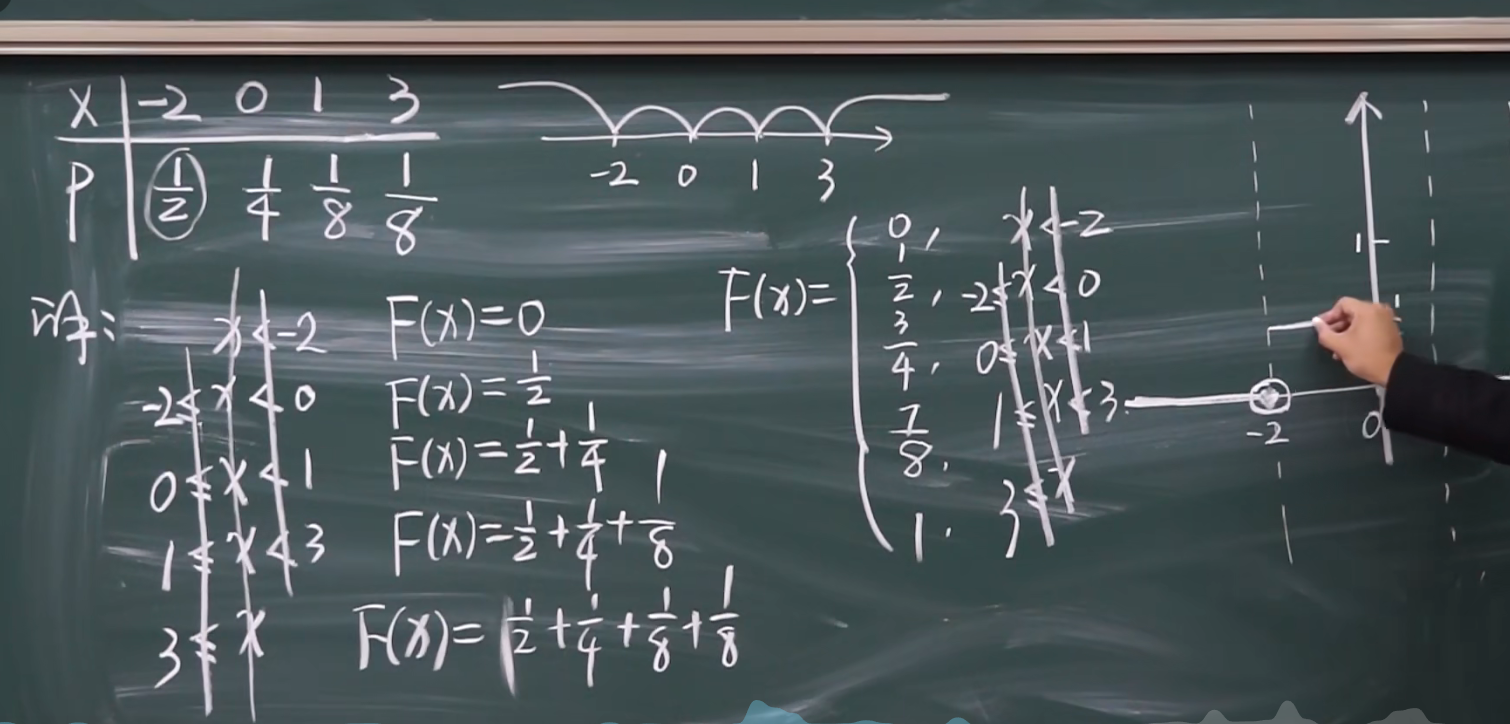 X -2 0 1 3
P 1/2 1/4 1/8 1/8
-2 0 1 3
解:
x<-2 F(x)=0
-2≤x<0 F(x)=1/2
0≤x<1 F(x)=1/2+1/4
1≤x<3 F(x)=1/2+1/4+1/8
3≤x F(x)=1/2+1/4+1/8+1/8
F(x)=
0, x<-2
1/2, -2≤x<0
3/4, 0≤x<1
7/8, 1≤x<3.
1. 3≤x
1
-2 0